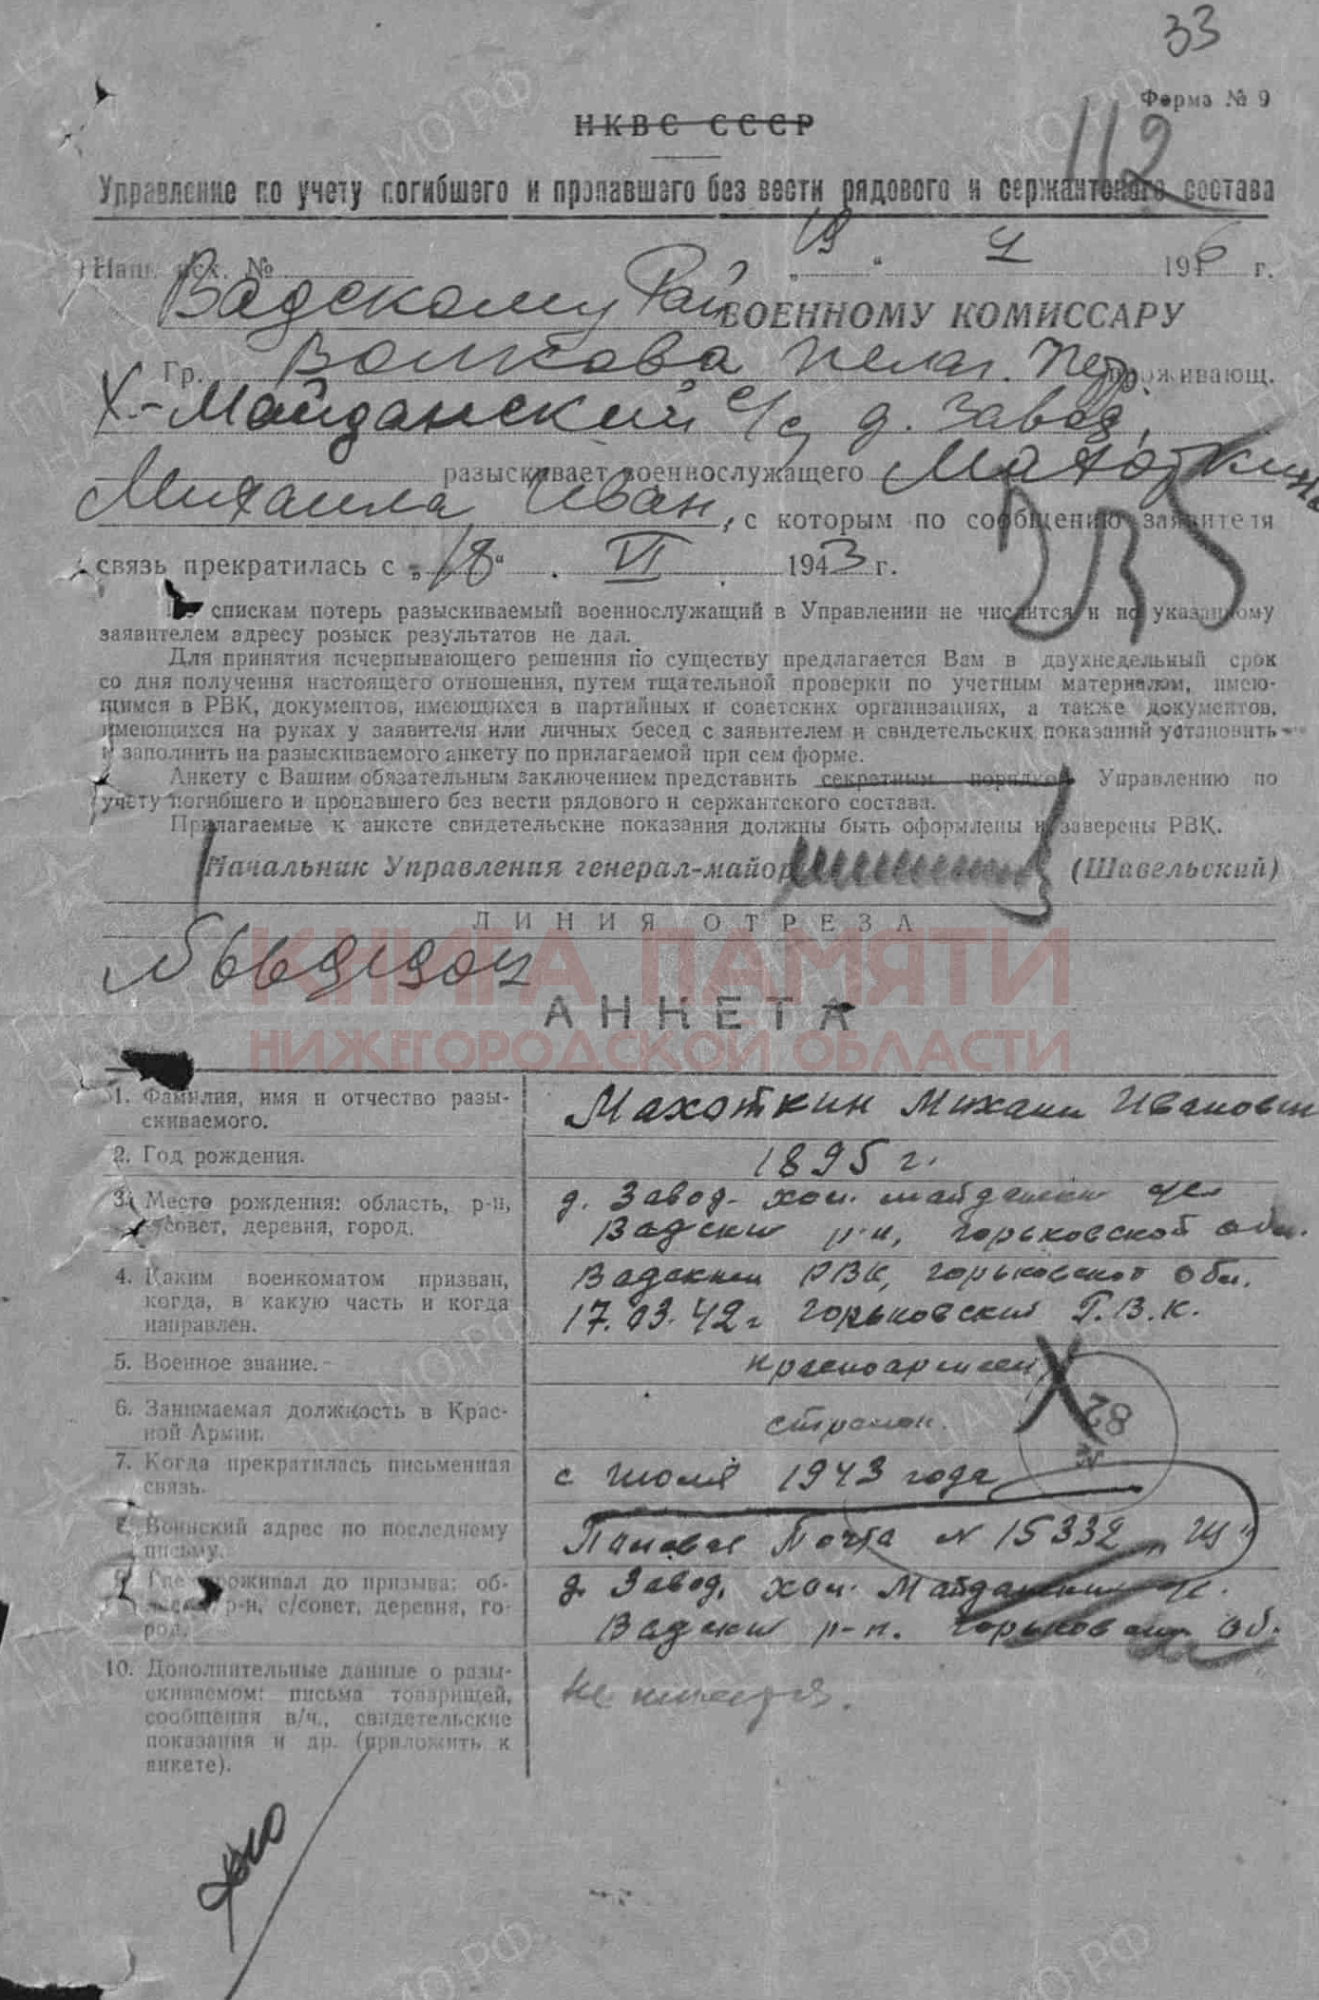 33
Форма № 9
НКВС СССР
112
Управление по учету погибшего и пропавшего без вести рядового и сержантского состава
Наш. исх. № „19“ 4 1946 г.
Вадскому Рай ВОЕННОМУ КОМИССАРУ
Гр. Волкова Пелаг. Петр. проживающ.
Х-Майданский с/с д. Завод,
разыскивает военнослужащего Махоткина
Михаила Иван, с которым по сообщению заявителя
связь прекратилась с „18“ VI 1943 г.
По спискам потерь разыскиваемый военнослужащий в Управлении не числится и по указанному
заявителем адресу розыск результатов не дал.
Для принятия исчерпывающего решения по существу предлагается Вам в двухнедельный срок
со дня получения настоящего отношения, путем тщательной проверки по учетным материалом, имею-
щимся в РВК, документов, имеющихся в партийных и советских организациях, а также документов,
имеющихся на руках у заявителя или личных бесед с заявителем и свидетельских показаний установить
и заполнить на разыскиваемого анкету по прилагаемой при сем форме.
Анкету с Вашим обязательным заключением представить секретным порядком Управлению по
учету погибшего и пропавшего без вести рядового и сержантского состава.
Прилагаемые к анкете свидетельские показания должны быть оформлены и заверены РВК.
Начальник Управления генерал-майор (Шавельский)
ЛИНИЯ ОТРЕЗА
КНИГА ПАМЯТИ
АНКЕТА
НИЖЕГОРОДСКОЙ ОБЛАСТИ
1. Фамилия, имя и отчество разы-
скиваемого.
Махоткин Михаил Иванович
2. Год рождения.
1895 г.
3. Место рождения: область, р-н,
с/совет, деревня, город.
д. Завод. хол. майданский
Вадский р-н, Горьковской обл.
4. Каким военкоматом призван,
когда, в какую часть и когда
направлен.
Вадский РВК, Горьковской обл.
17.03.42 г Горьковский Г.В.К.
5. Военное звание.-
красноармеец
6. Занимаемая должность в Крас-
ной Армии.
стрелок.
№ 82
7. Когда прекратилась письменная
связь.
с июля 1943 года
8. Воинский адрес по последнему
письму.
Полевая Почта N 15332 „Щ“
9. Где проживал до призыва: об-
ласть, р-н, с/совет, деревня, го-
род.
д. Завод, хол. Майданский
Вадский р-н. Горьковской об.
10. Дополнительные данные о разы-
скиваемом: письма товарищей,
сообщения в/ч., свидетельские
показания и др. (приложить к
анкете).
Не имеется.